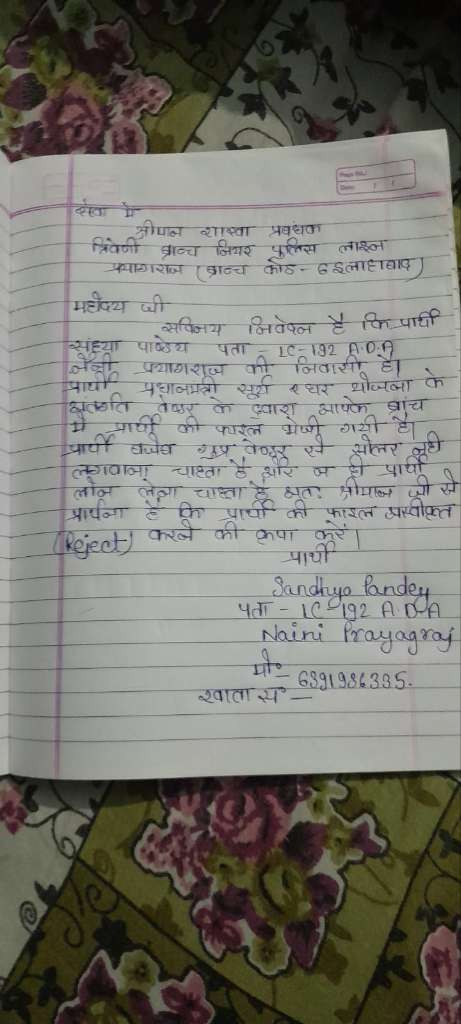 Page No.
Date
सेवा में
श्रीमान शाखा प्रबंधक
त्रिवेणी ब्रान्च नियर पुलिस लाइन
प्रयागराज (ब्रान्च कोड- इलाहाबाद)
महोदय जी
सविनय निवेदन है कि प्रार्थी
संध्या पाण्डेय पता - IC-192 A.D.A
नैनी प्रयागराज की निवासी है।
प्रार्थी प्रधानमंत्री सूर्य घर योजना के
अंतर्गत वेन्डर के द्वारा आपके ब्रांच
में प्रार्थी की फाइल भेजी गयी है।
प्रार्थी ग्रुप वेन्डर से सोलर नही
लगवाना चाहता है और न ही प्रार्थी
लोन लेना चाहता है अतः श्रीमान जी से
प्रार्थना है कि प्रार्थी की फाइल अस्वीकृत
(Reject) करने की कृपा करें।
प्रार्थी
Sandhya Pandey
पता - IC-192 A.D.A
Naini Prayagraj
मो०- 6391986335.
खाता सं० -